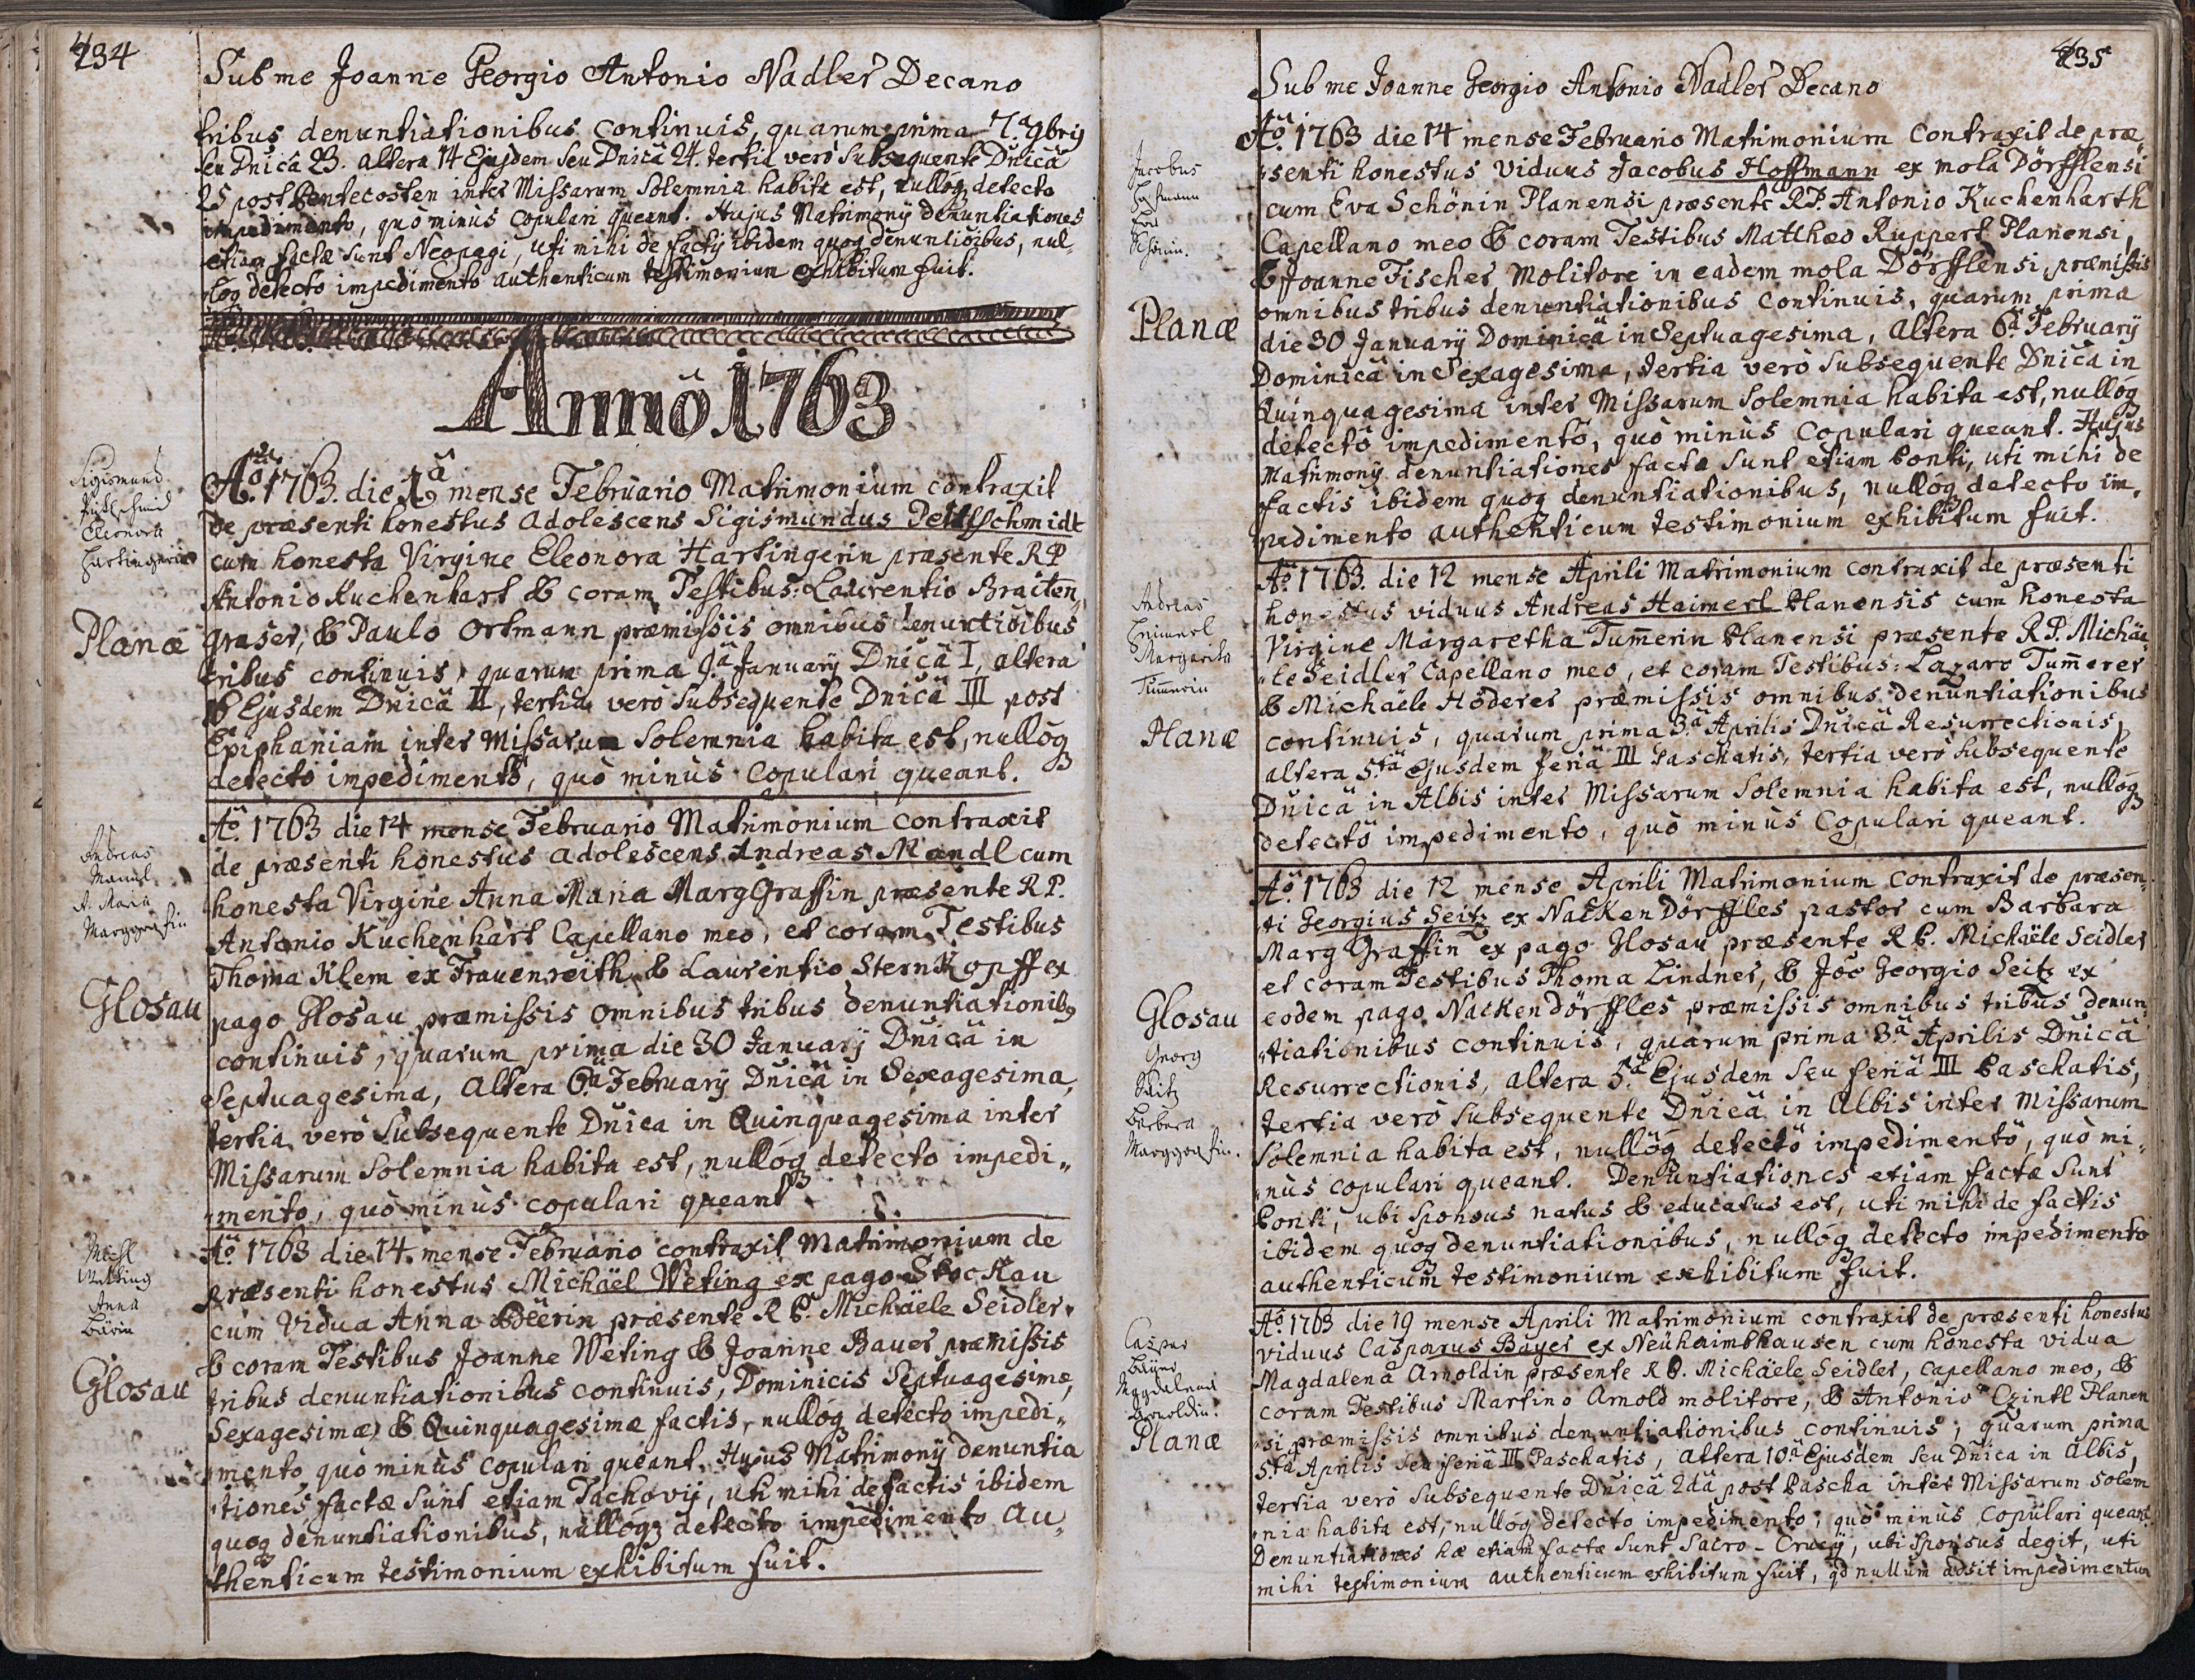 234
Sub me Joanne Georgio Antonio Nadler Decano
tribus denuntiationibus continuis, quarum prima 7.ª 9bris
seu Dnicâ 23. altera 14 Ejusdem seu Dnicâ 24. tertia verò subsequente Dnicâ
25 post Pentecosten inter Missarum Solemnia habita est, nullóq detecto
impedimento, quo minus copulari queant. Hujus Matrimonÿ denuntiationes
etiam factæ sunt Neopagi, uti mihi de factis ibidem quoq denuntiõibus, nul-
lóq detecto impedimento authenticum testimonium exhibitum fuit.
Annô 1763
Sigismund
Eleonora
Hartingerin
Planæ
Aõ. 1763. die 1â mense Februario Matrimonium contraxit
de præsenti honestus adolescens Sigismundus Pettschmidt
cum honesta Virgine Eleonora Hartingerin præsente RP
Antonio Kuchenhart & coram Testibus: Laurentio Braiten,,
graser, & Paulo Ortmann præmissis omnibus denuntiõibus
tribus continuis, quarum prima 9.â Januarÿ Dnicâ I, altera
Ejusdem Dnicâ II, tertia verò subsequente Dnicâ III post
Epiphaniam inter Missarum Solemnia habita est, nullóq
detectô impedimentô, quò minùs copulari queant.
Andreas
Mandl
A. Maria
Marggrafin
Glosau
Aõ. 1763 die 14 mense Februario Matrimonium contraxit
de præsenti honestus adolescens Andreas Mandl cum
honesta Virgine Anna Maria MargGraffin præsente R P.
Antonio Kuchenhart Capellano meo, et coram Testibus
Thoma Klem ex Frauenreith & Laurentio SternKopff ex
pago Glosau præmissis omnibus tribus denuntiationib9
continuis, quarum prima die 30 Januarÿ Dnicâ in
Septuagesima, altera 6.â Februarÿ Dnicâ in Sexagesima,
tertia verò subsequente Dnica in Quinquagesima inter
Missarum Solemnia habita est, nullóq detecto impedi,,
,,mento, quò minùs copulari queant
Michl
Anna
Bärin
Glosau
Aõ. 1763 die 14. mense Februario contraxit Matrimonium de
præsenti honestus Michäel Weting ex pago StocKau
cum Vidua Anna Beerin præsente R P. Michäele Seidler
& coram Testibus Joanne Weting & Joanne Bauer præmissis
tribus denuntiationibus continuis, Dominicis Septuagesimæ,
Sexagesimæ, & Quinquagesimæ factis, nullóq detecto impedi,,
,,mento, quò minùs copulari queant. Hujus Matrimonÿ denuntia
,,tiones factæ sunt etiam Tachovÿ, uti mihi de factis ibidem
quoq denuntiationibus, nullóq detecto impedimento au,,
thenticum testimonium exhibitum fuit.
235
Sub me Joanne Georgio Antonio Nadler Decano
Jacobus
Hofmann
Eva
Schönin.
Planæ
Aõ. 1763 die 14 mense Februario Matrimonium contraxit de præ,,
,,senti honestus viduus Jacobus Hoffmann ex mola Dörfflensi
cum Eva Schönin Planensi præsente RP. Antonio Kuchenharth
Capellano meo & coram Testibus Matthæo Ruppert Planensi,
& Joanne Fischer Molitore in eadem mola Dörfflensi, præmissis
omnibus tribus denuntiationibus continuis, quarum prima
die 30 Januarÿ Dominicâ in Septuagesima, altera 6â Februarÿ
Dominicâ in Sexagesima, tertia verò subsequente Dnica in
Quinquagesima inter Missarum Solemnia habita est, nullóq
detectô impedimentô, quò minùs copulari queant. Hujus
Matrimonÿ denuntiationes factæ sunt etiam Ponti, uti mihi de
factis ibidem quoq denuntiationibus, nullóq detecto im,,
pedimento authenticum testimonium exhibitum fuit.
Andreas
Heimerl
Margarita
Tummerin
Planæ
Aõ. 1763. die 12 mense Aprili Matrimonium contraxit de præsenti
honestus viduus Andreas Haimerl Planensis cum honesta
Virgine Margaretha Tumerin Planensi præsente R P. Michäe
,,le Seidler Capellano meo, et coram Testibus: Lazaro Tumerer
& Michäele Höderer præmissis omnibus denuntiationibus
continuis, quarum prima 3.â Aprilis Dnicâ Resurrectionis,
altera 5.tâ Ejusdem feriâ III Paschatis, tertia verò subsequente
Dnicâ in Albis inter Missarum Solemnia habita est, nullóq
detectô impedimento, quò minùs copulari queant.
Glosau
Georg
Seitz
Barbara
Marggrafin.
Aõ. 1763 die 12 mense Aprili Matrimonium contraxit de præsen,,
,,ti Georgius Seitz ex NacKenDörffles pastor cum Barbara
Marg Graffin ex pago Glosau præsente R P. Michäele Seidler
et coram Testibus Thoma Lindner, & Joõ Georgio Seitz ex
eodem pago NacKendörffles præmissis omnibus tribus denun,,
,,tiationibus continuis, quarum prima 3.â Aprilis Dnicâ
Resurrectionis, altera 5.â Ejusdem seu feriâ III Paschatis,
tertia verò subsequente Dnicâ in Albis inter Missarum
Solemnia habita est, nullóq detectô impedimentô, quò mi,,
,,nùs copulari queant. Denuntiationes etiam factæ sunt
Ponti, ubi sponsus natus & educatus est, uti mihi de factis
ibidem quoq denuntiationibus, nullóq detecto impedimento
authenticum testimonium exhibitum fuit.
Caspar
Magdalena
Arnoldin.
Planæ
Aõ. 1763 die 19 mense Aprili Matrimonium contraxit de præsenti honestus
viduus Casparus Bayer ex Neühaimbhausen cum honesta vidua
Magdalena Arnoldin præsente R P. Michäele Seidler, capellano meo, &
coram Testibus Martino Arnold molitore, & Antonio Czintl Planen
,,si præmissis omnibus denuntiationibus continuis, quarum prima
5.tâ Aprilis seu feriâ III Paschatis, altera 10.â Ejusdem seu Dnica in Albis,
tertia verò subsequente Dnicâ 2dâ post Pascha inter Missarum solem
,,nia habita est, nullóq detecto impedimento, quò minùs copulari queant.
Denuntiationes hæ etiam factæ sunt Sacro-Crucÿ, ubi sponsus degit, uti
mihi testimonium authenticum exhibitum fuit, qd nullum adsit impedimentum